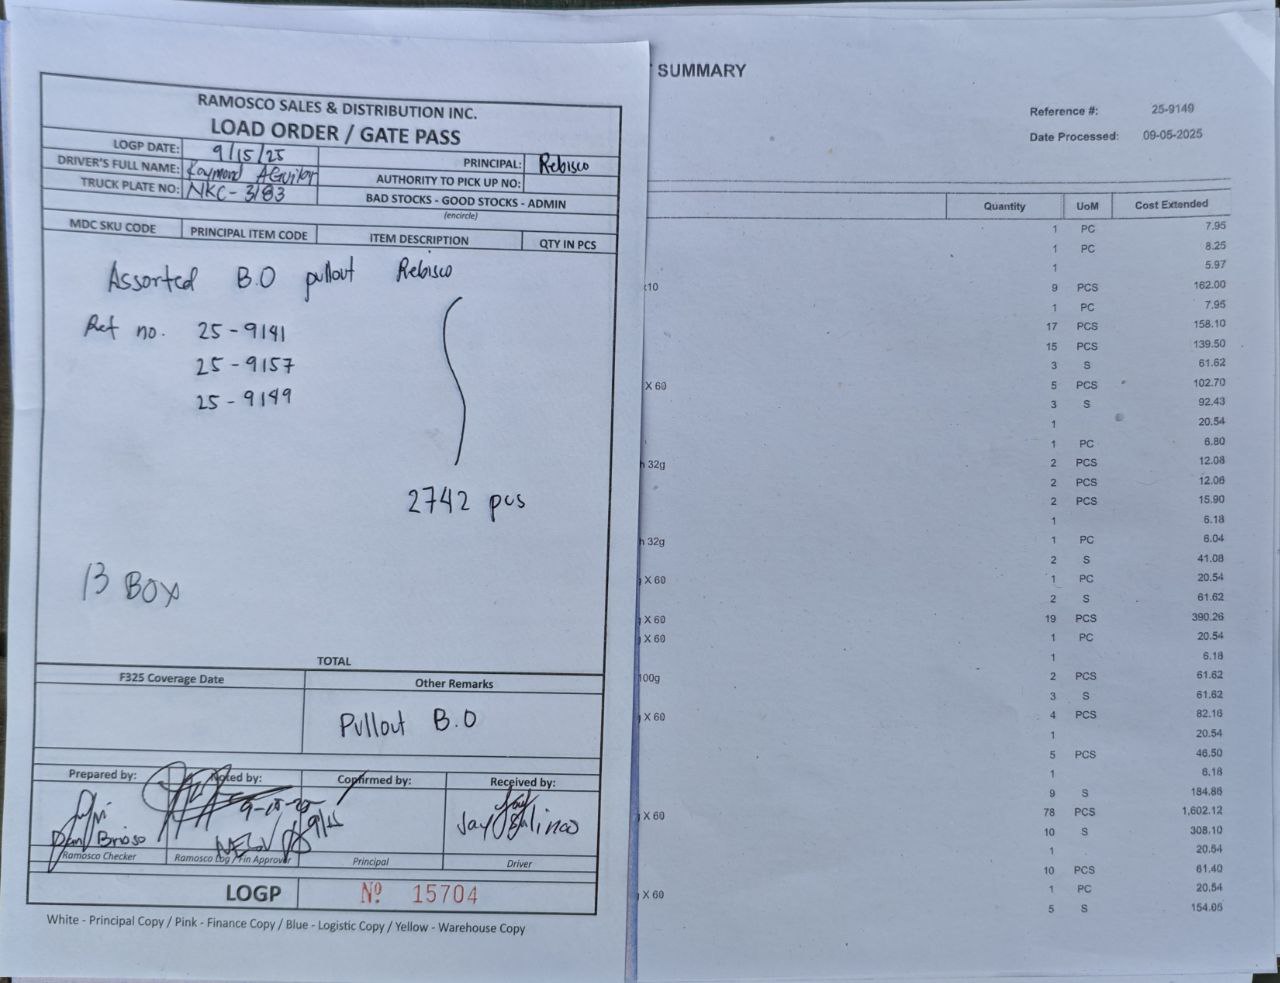 RAMOSCO SALES & DISTRIBUTION INC.
LOAD ORDER / GATE PASS
LOGP DATE: 9/15/25
DRIVER'S FULL NAME: Raymond Aguilar
PRINCIPAL: Rebisco
TRUCK PLATE NO: NKC-3183
AUTHORITY TO PICK UP NO:
BAD STOCKS - GOOD STOCKS - ADMIN
(encircle)
MDC SKU CODE PRINCIPAL ITEM CODE ITEM DESCRIPTION QTY IN PCS
Assorted B.O pullout Rebisco
Ref no. 25-9141
25-9157
25-9149
2742 pcs
13 BOX
TOTAL
F325 Coverage Date Other Remarks
Pullout B.O
Prepared by: Noted by: Confirmed by: Received by:
9-15-25
Dan Brioso
Ramosco Checker Ramosco Log / Fin Approver Principal Driver
LOGP Nº 15704
White - Principal Copy / Pink - Finance Copy / Blue - Logistic Copy / Yellow - Warehouse Copy
SUMMARY
Reference #: 25-9149
Date Processed: 09-05-2025
Quantity UoM Cost Extended
1 PC 7.95
1 PC 8.25
1 5.97
x10 9 PCS 162.00
1 PC 7.95
17 PCS 158.10
15 PCS 139.50
3 S 61.62
X 60 5 PCS 102.70
3 S 92.43
1 20.54
1 PC 6.80
h 32g 2 PCS 12.08
2 PCS 12.06
2 PCS 15.90
1 6.18
h 32g 1 PC 6.04
2 S 41.08
X 60 1 PC 20.54
2 S 61.62
X 60 19 PCS 390.26
X 60 1 PC 20.54
1 6.18
100g 2 PCS 61.62
3 S 61.62
X 60 4 PCS 82.16
1 20.54
5 PCS 46.50
1 6.18
9 S 184.86
X 60 78 PCS 1,602.12
10 S 308.10
1 20.54
10 PCS 61.40
X 60 1 PC 20.54
5 S 154.05